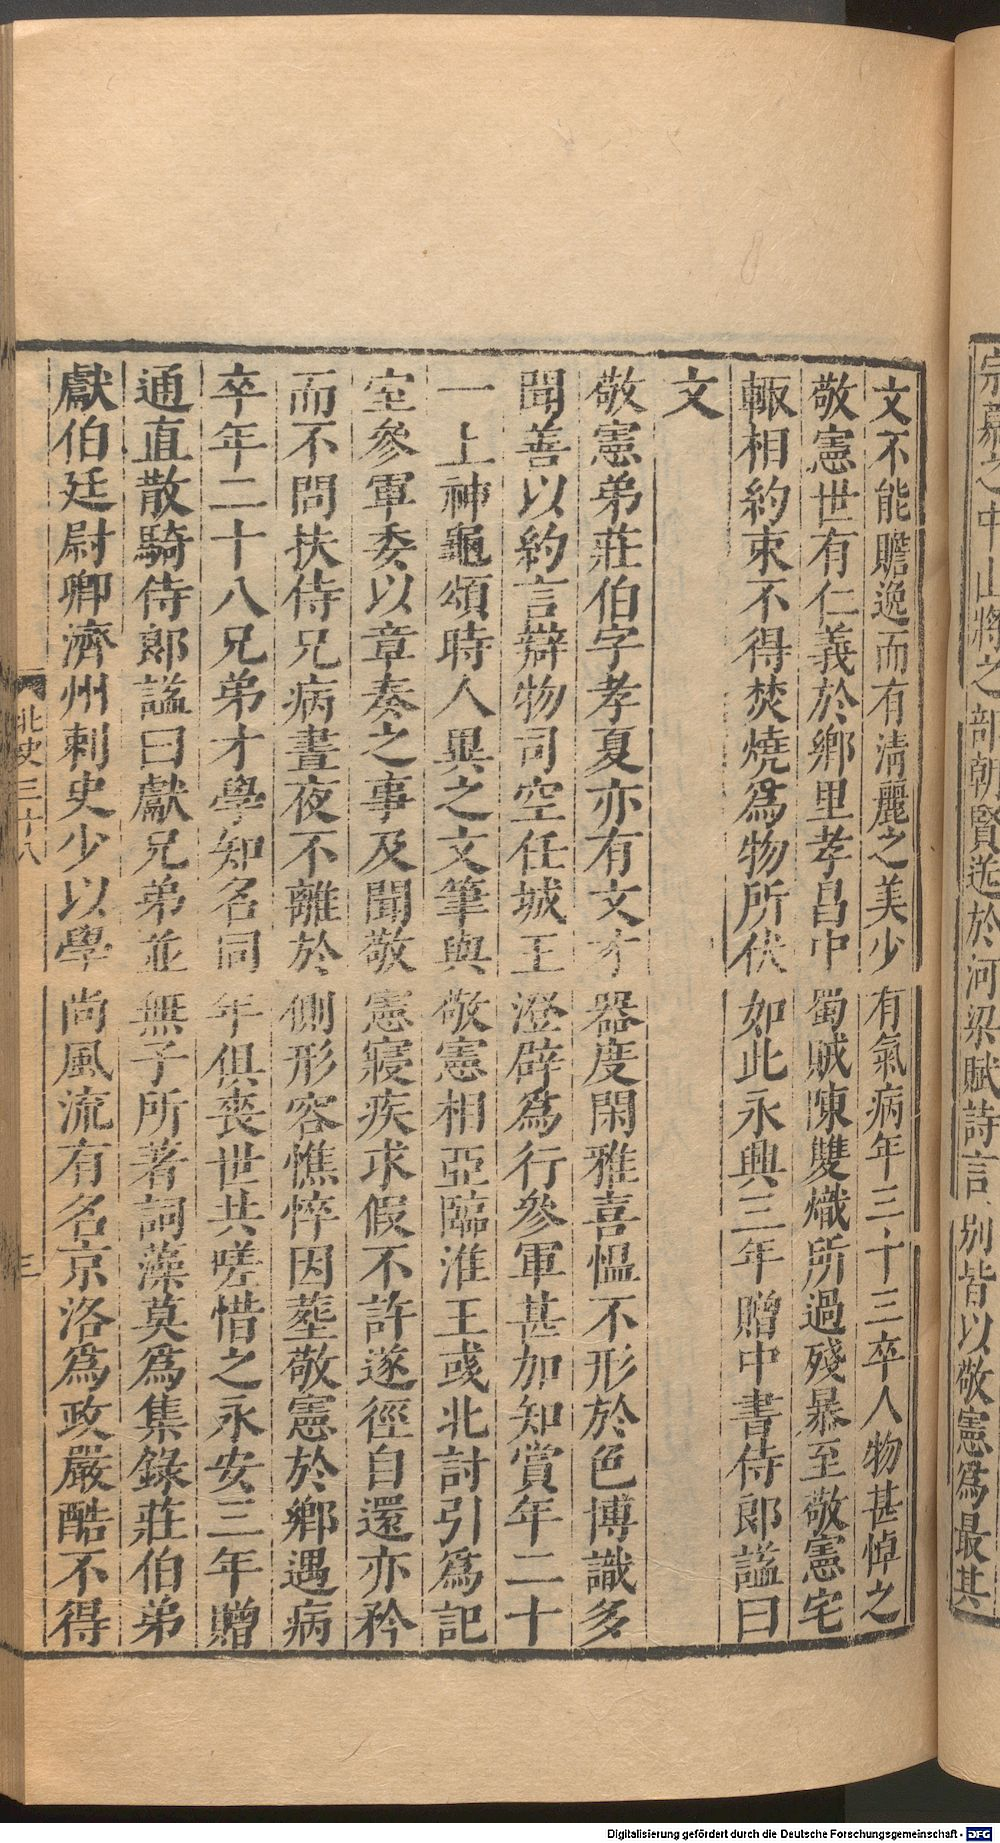 宗慕之中山將之部朝賢送於河梁賦詩言別皆以敬憲爲最其
文不能贍逸而有清麗之美少有氣病年三十三卒人物甚悼之
敬憲世有仁義於鄉里孝昌中蜀賊陳雙熾所過殘暴至敬憲宅
輙相約束不得焚燒爲物所伏如此永興三年贈中書侍郎謚曰
文
敬憲弟莊伯字孝夏亦有文才器度閑雅喜愠不形於色博識多
聞善以約言辯物司空任城王澄辟爲行參軍甚加知賞年二十
一上神龜頌時人異之文筆與敬憲相亞臨淮王彧北討引爲記
室參軍委以章奏之事及聞敬憲寢疾求假不許遂徑自還亦矜
而不問扶侍兄病晝夜不離於側形容憔悴因塟敬憲於鄉遇病
卒年二十八兄弟才學知名同年俱喪世共嗟惜之永安三年贈
通直散騎侍郎謚曰獻兄弟並無子所著詞藻莫爲集錄莊伯弟
獻伯廷尉卿濟州刺史少以學尚風流有名京洛爲政嚴酷不得
北史三十八
三
Digitalisierung gefördert durch die Deutsche Forschungsgemeinschaft - DFG